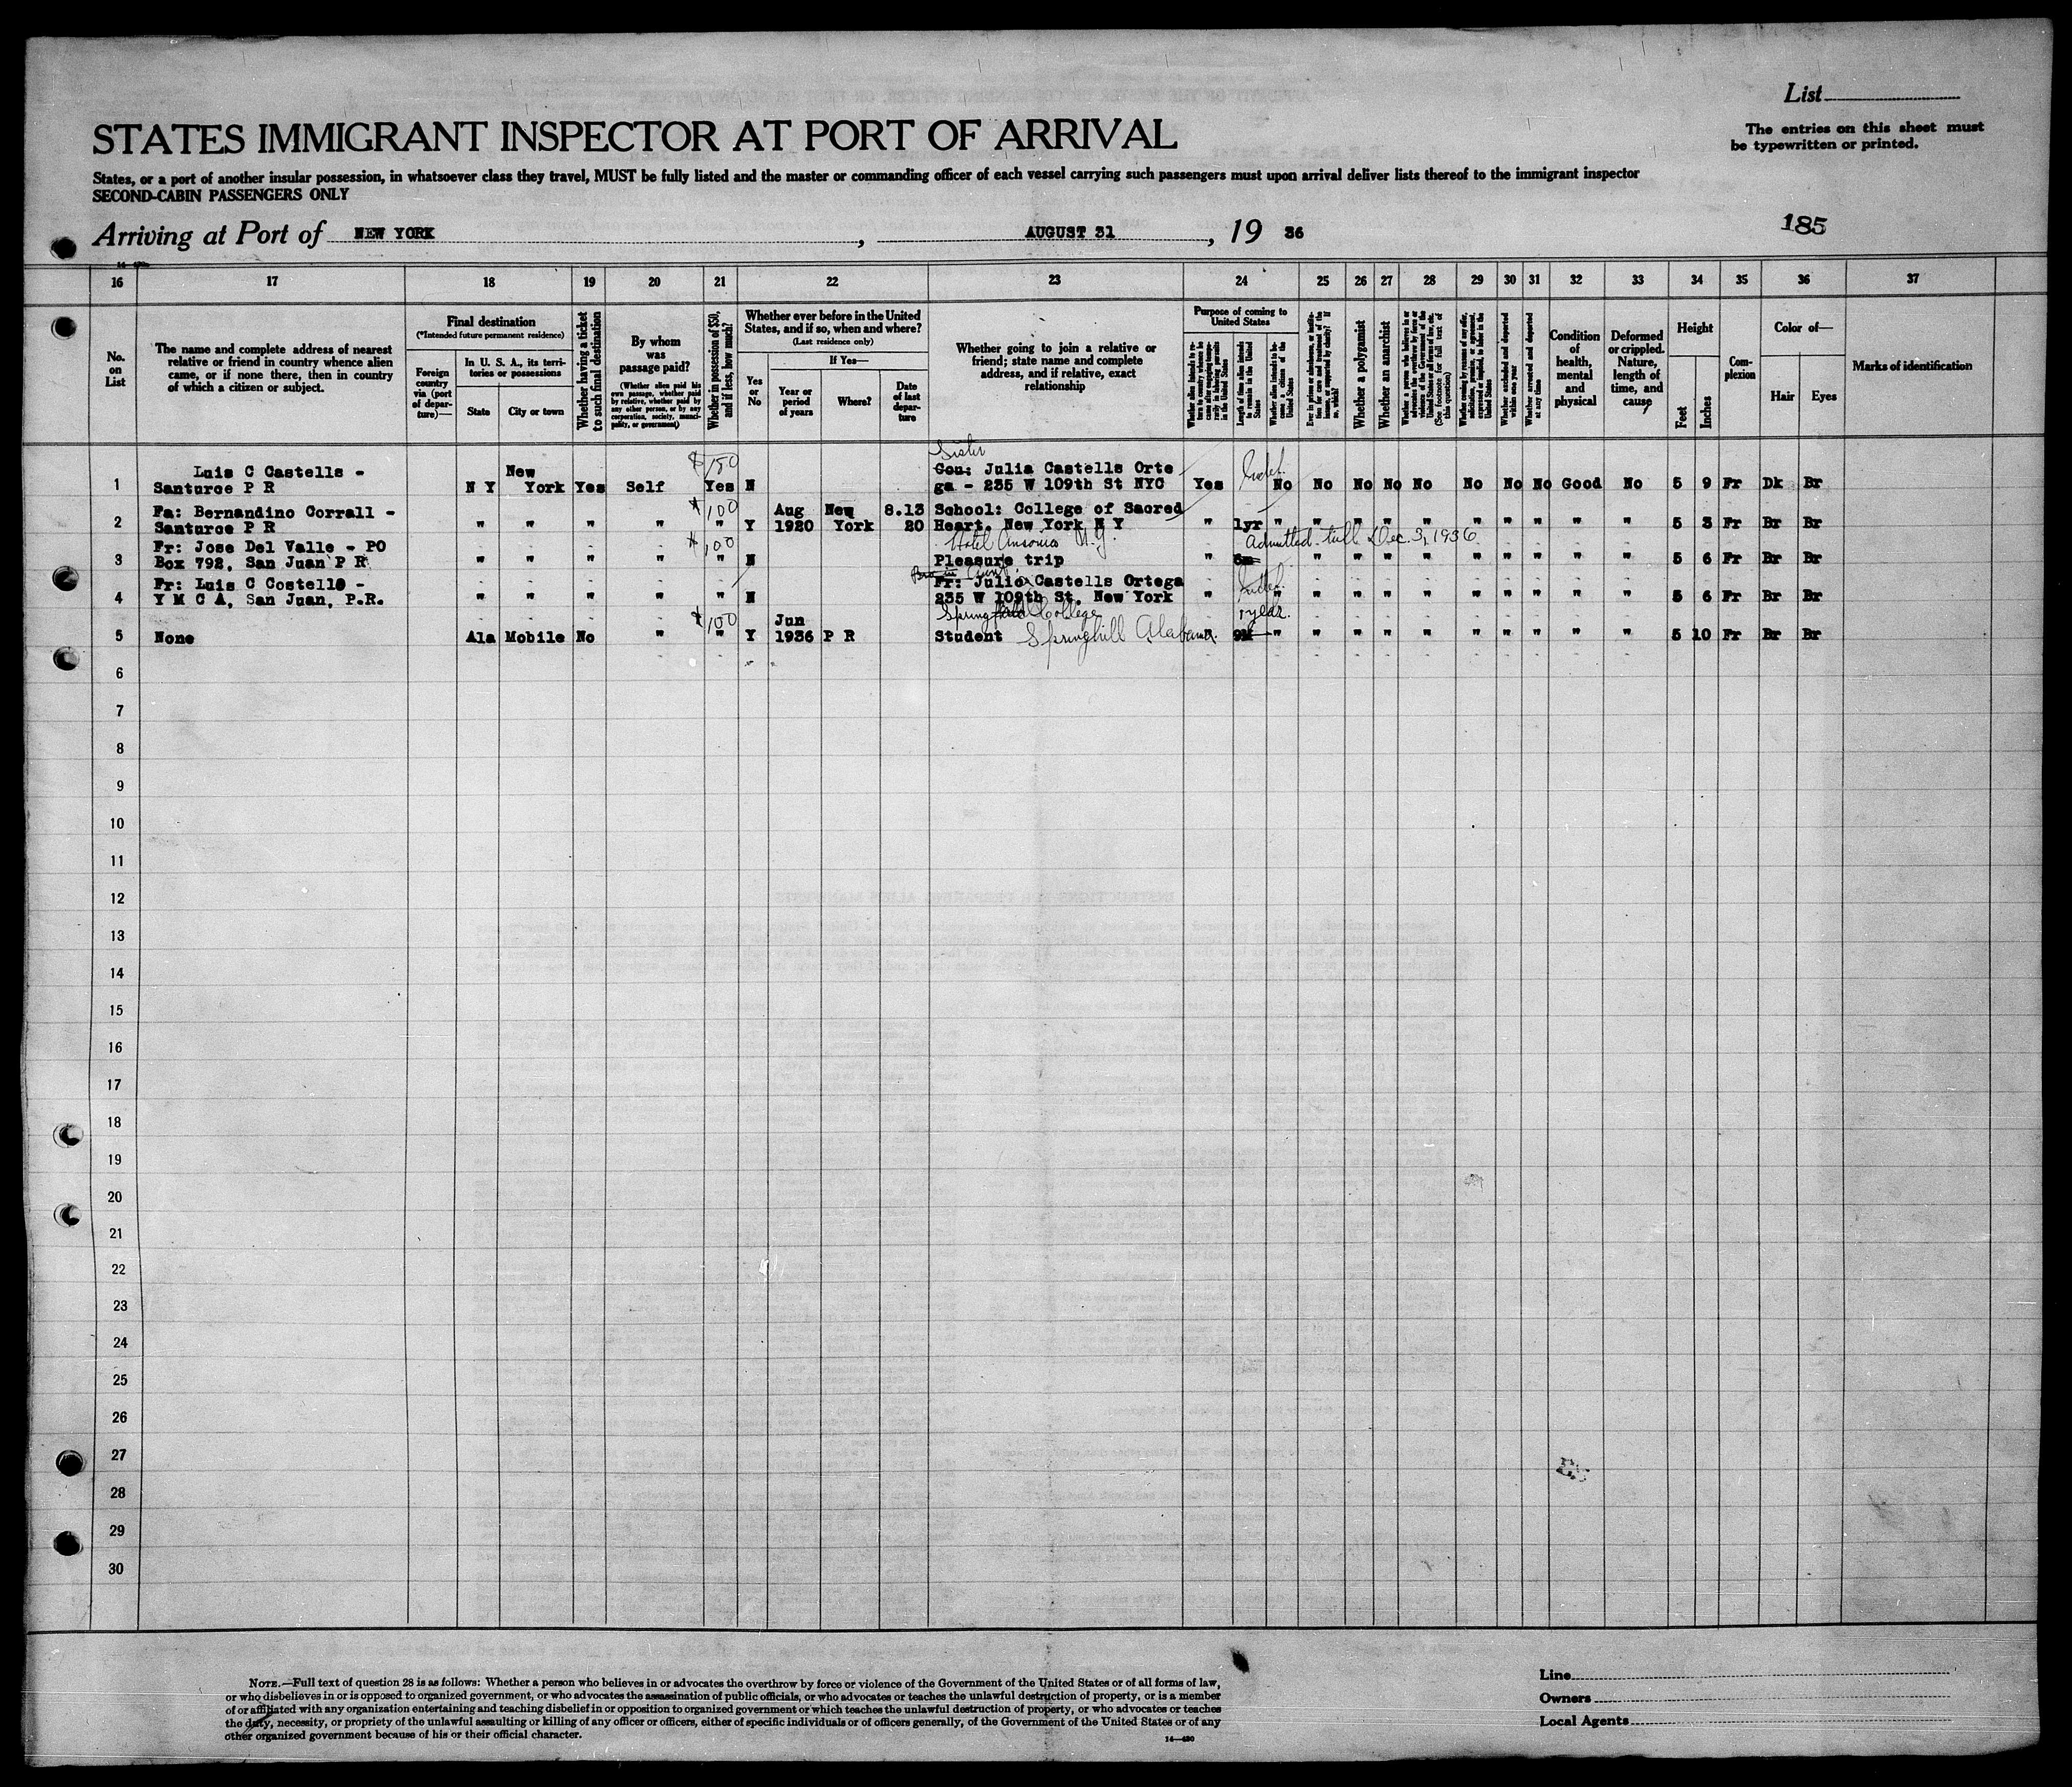 List
STATES IMMIGRANT INSPECTOR AT PORT OF ARRIVAL
The entries on this sheet must
be typewritten or printed.
States, or a port of another insular possession, in whatsoever class they travel, MUST be fully listed and the master or commanding officer of each vessel carrying such passengers must upon arrival deliver lists thereof to the immigrant inspector
SECOND-CABIN PASSENGERS ONLY
Arriving at Port of NEW YORK, AUGUST 31, 19 36
185
16 17 18 19 20 21 22 23 24 25 26 27 28 29 30 31 32 33 34 35 36 37
No.
on
List
The name and complete address of nearest
relative or friend in country whence alien
came, or if none there, then in country
of which a citizen or subject.
Final destination
(*Intended future permanent residence)
Foreign
country
via (port
of depar-
ture)—
In U. S. A., its terri-
tories or possessions
State
City or town
Whether having a ticket
to such final destination
By whom
was
passage paid?
(Whether alien paid his
own passage, whether paid
by relative, whether paid by
any other person, or by any
corporation, society, munici-
pality, or government)
Whether in possession of $50,
and if less, how much?
Whether ever before in the United
States, and if so, when and where?
(Last residence only)
Yes
or
No
If Yes—
Year or
period
of years
Where?
Date
of last
depar-
ture
Whether going to join a relative or
friend; state name and complete
address, and if relative, exact
relationship
Purpose of coming to
United States
Length of time alien intends
to remain in the United
States
Whether a polygamist
Whether an anarchist
Condition
of
health,
mental
and
physical
Deformed
or crippled.
Nature,
length of
time, and
cause
Height
Feet
Inches
Com-
plexion
Color of—
Hair
Eyes
Marks of identification
Sister
$150 Indef.
Luis C Castells - New Con: Julia Castells Orte
1 Santurce P R N Y York Yes Self Yes N ga - 235 W 109th St NYC Yes No No No No No No No No Good No 5 9 Fr Dk Br
$100
Fa: Bernandino Corrall - Aug New 8.13 School: College of Sacred
2 Santurce P R " " " " " Y 1920 York 20 Heart. New York N Y " 1yr " " " " " " " " " " 5 3 Fr Br Br
$100 Hotel Ansonia N.Y. Admitted till Dec. 3, 1936
Fr: Jose Del Valle - PO
3 Box 792, San Juan P R " " " " " N Pleasure trip " " " " " " " " " " " 5 6 Fr Br Br
Aunt
Fr: Luis C Costello - Fr: Julio Castells Ortega
4 Y M C A, San Juan, P.R. " " " " " N 235 W 109th St. New York " " " " " " " " " " " 5 6 Fr Br Br
$100 College 1 year.
Jun
5 None Ala Mobile No " " Y 1936 P R Student Springhill Alabama. " 9M " " " " " " " " " " 5 10 Fr Br Br
6
7
8
9
10
11
12
13
14
15
16
17
18
19
20
21
22
23
24
25
26
27
28
29
30
NOTE.—Full text of question 28 is as follows: Whether a person who believes in or advocates the overthrow by force or violence of the Government of the United States or of all forms of law,
or who disbelieves in or is opposed to organized government, or who advocates the assassination of public officials, or who advocates or teaches the unlawful destruction of property, or is a member
of or affiliated with any organization entertaining and teaching disbelief in or opposition to organized government or which teaches the unlawful destruction of property, or who advocates or teaches
the duty, necessity, or propriety of the unlawful assaulting or killing of any officer or officers, either of specific individuals or of officers generally, of the Government of the United States or of any
other organized government because of his or their official character.
14—430
Line
Owners
Local Agents